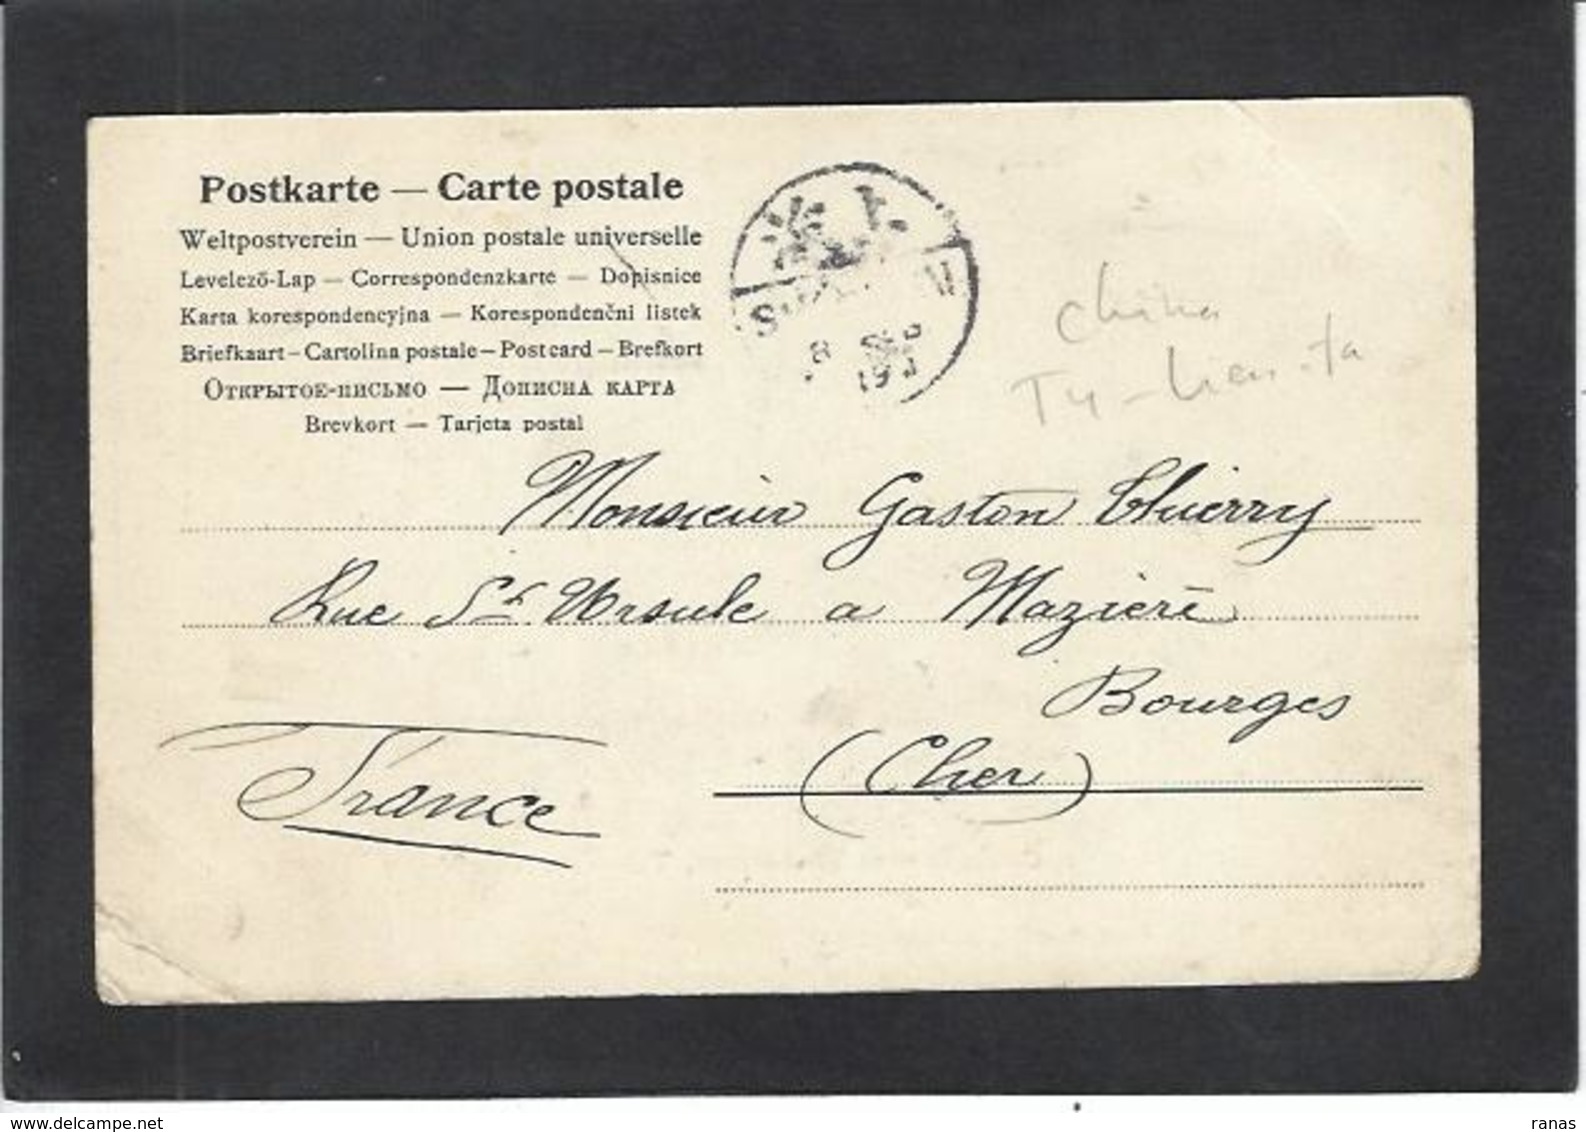 Postkarte — Carte postale
Weltpostverein — Union postale universelle
Levelező-Lap — Correspondenzkarte — Dopisnice
Karta korespondencyjna — Korespondenčni listek
Briefkaart — Cartolina postale — Post card — Brefkort
Открытое-письмо — Дописна карта
Brevkort — Tarjeta postal
China
Monsieur Gaston Thierry
Rue Ste Ursule a Mazière
Bourges
(Cher)
France
www.delcampe.net
ranas